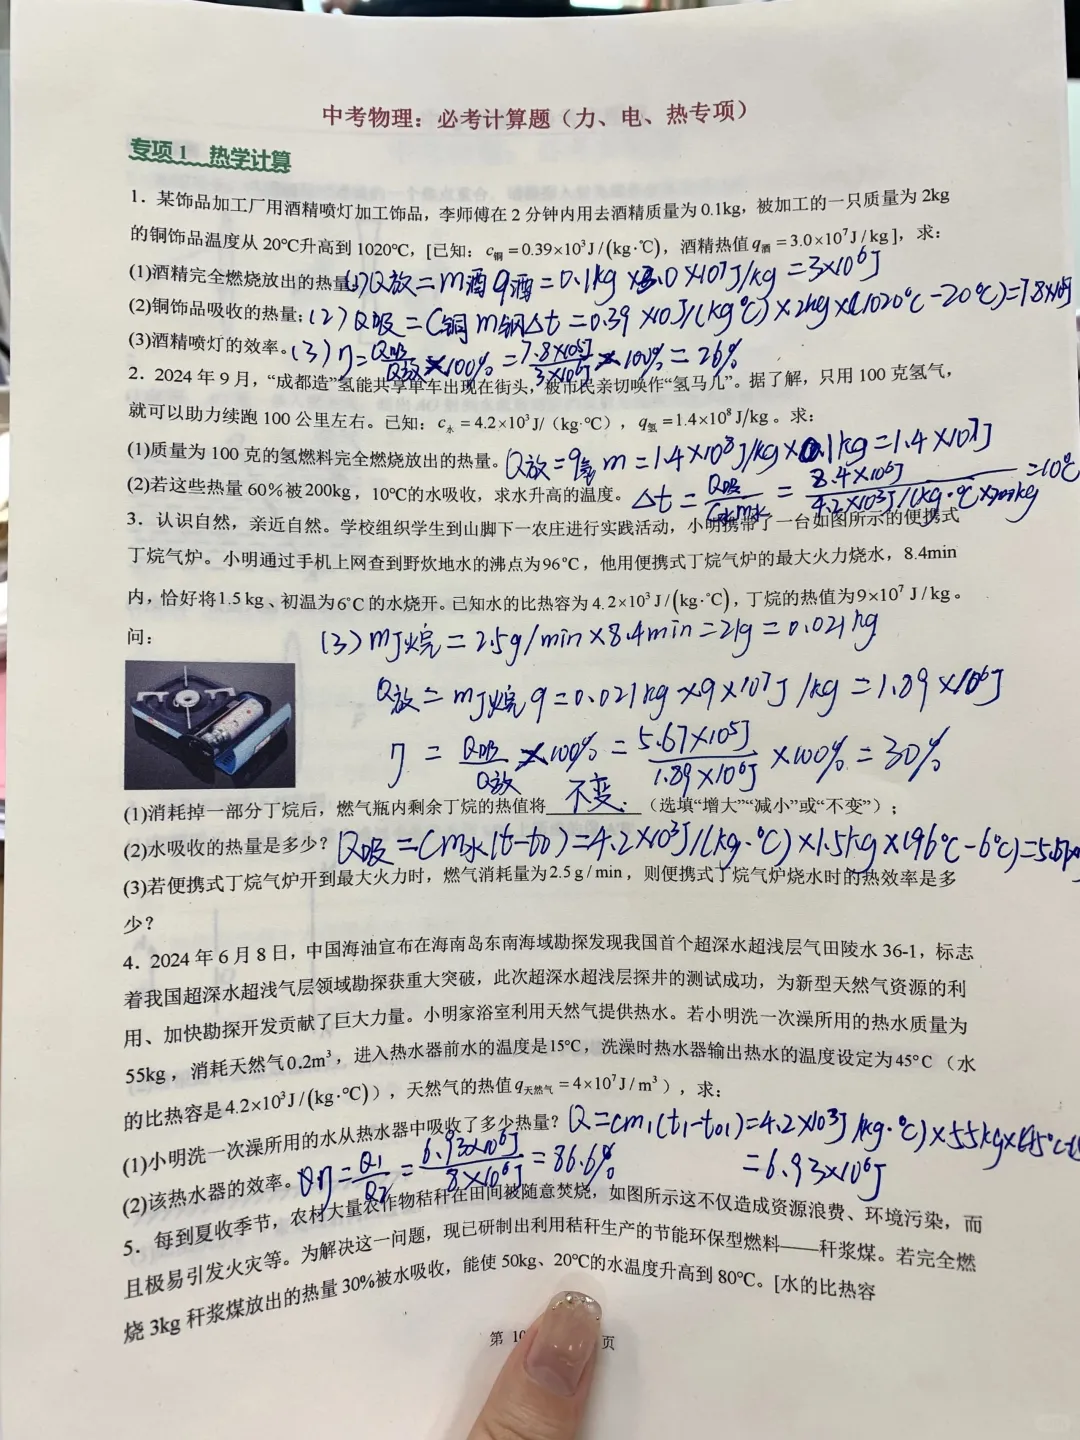 中考物理：必考计算题（力、电、热专项）
专项1 热学计算
1．某饰品加工厂用酒精喷灯加工饰品，李师傅在2分钟内用去酒精质量为0.1kg，被加工的一只质量为2kg
的铜饰品温度从20℃升高到1020℃，[已知：c铜=0.39×10³J/(kg·℃)，酒精热值q酒=3.0×10⁷J/kg]，求：
(1)酒精完全燃烧放出的热量 (1)Q放=m酒q酒=0.1kg×3.0×10⁷J/kg=3×10⁶J
(2)铜饰品吸收的热量；(2)Q吸=C铜m铜Δt=0.39×10J/(kg℃)×2kg×(1020℃-20℃)=7.8×10⁵J
(3)酒精喷灯的效率。(3)η=Q吸/Q放×100%=7.8×10⁵J/3×10⁶J×100%=26%
2．2024年9月，“成都造”氢能共享单车出现在街头，被市民亲切唤作“氢马儿”。据了解，只用100克氢气，
就可以助力续跑100公里左右。已知：c水=4.2×10³J/（kg·℃），q氢=1.4×10⁸J/kg。求：
(1)质量为100克的氢燃料完全燃烧放出的热量。Q放=q氢m=1.4×10⁸J/kg×0.1kg=1.4×10⁷J
(2)若这些热量60%被200kg，10℃的水吸收，求水升高的温度。Δt=Q吸/C水m水=8.4×10⁶J/4.2×10³J/(kg·℃×200kg=10℃
3．认识自然，亲近自然。学校组织学生到山脚下一农庄进行实践活动，小明携带了一台如图所示的便携式
丁烷气炉。小明通过手机上网查到野炊地水的沸点为96℃，他用便携式丁烷气炉的最大火力烧水，8.4min
内，恰好将1.5kg、初温为6℃的水烧开。已知水的比热容为4.2×10³J/(kg·℃)，丁烷的热值为9×10⁷J/kg。
问：
(3)m丁烷=2.5g/min×8.4min=21g=0.021kg
Q放=m丁烷q=0.021kg×9×10⁷J/kg=1.89×10⁶J
η=Q吸/Q放×100%=5.67×10⁵J/1.89×10⁶J×100%=30%
(1)消耗掉一部分丁烷后，燃气瓶内剩余丁烷的热值将 不变 （选填“增大”“减小”或“不变”）；
(2)水吸收的热量是多少？Q吸=Cm水(t-t0)=4.2×10³J/(kg·℃)×1.5kg×(96℃-6℃)=5.67×
(3)若便携式丁烷气炉开到最大火力时，燃气消耗量为2.5g/min，则便携式丁烷气炉烧水时的热效率是多
少？
4．2024年6月8日，中国海油宣布在海南岛东南海域勘探发现我国首个超深水超浅层气田陵水36-1，标志
着我国超深水超浅气层领域勘探获重大突破，此次超深水超浅层探井的测试成功，为新型天然气资源的利
用、加快勘探开发贡献了巨大力量。小明家浴室利用天然气提供热水。若小明洗一次澡所用的热水质量为
55kg，消耗天然气0.2m³，进入热水器前水的温度是15℃，洗澡时热水器输出热水的温度设定为45℃（水
的比热容是4.2×10³J/(kg·℃)），天然气的热值q天然气=4×10⁷J/m³），求：
(1)小明洗一次澡所用的水从热水器中吸收了多少热量？Q=cm1(t1-t01)=4.2×10³J/(kg·℃)×55kg×(45℃-
=6.93×10⁶J
(2)该热水器的效率。η=Q1/Q2=6.93×10⁶J/8×10⁶J=86.6%
5．每到夏收季节，农村大量农作物秸秆在田间被随意焚烧，如图所示这不仅造成资源浪费、环境污染，而
且极易引发火灾等。为解决这一问题，现已研制出利用秸秆生产的节能环保型燃料——秆浆煤。若完全燃
烧3kg秆浆煤放出的热量30%被水吸收，能使50kg、20℃的水温度升高到80℃。[水的比热容
第 页